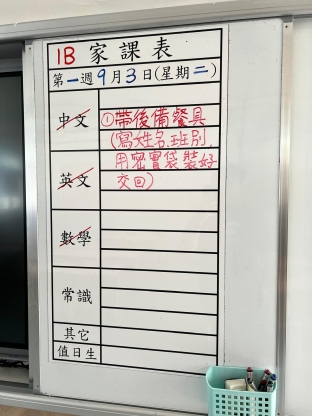 1B 家課表
第一週9月3日(星期二)
中文
①帶後備餐具
(寫姓名、班別,
英文
用密實袋裝好
交回)
數學
常識
其它
值日生